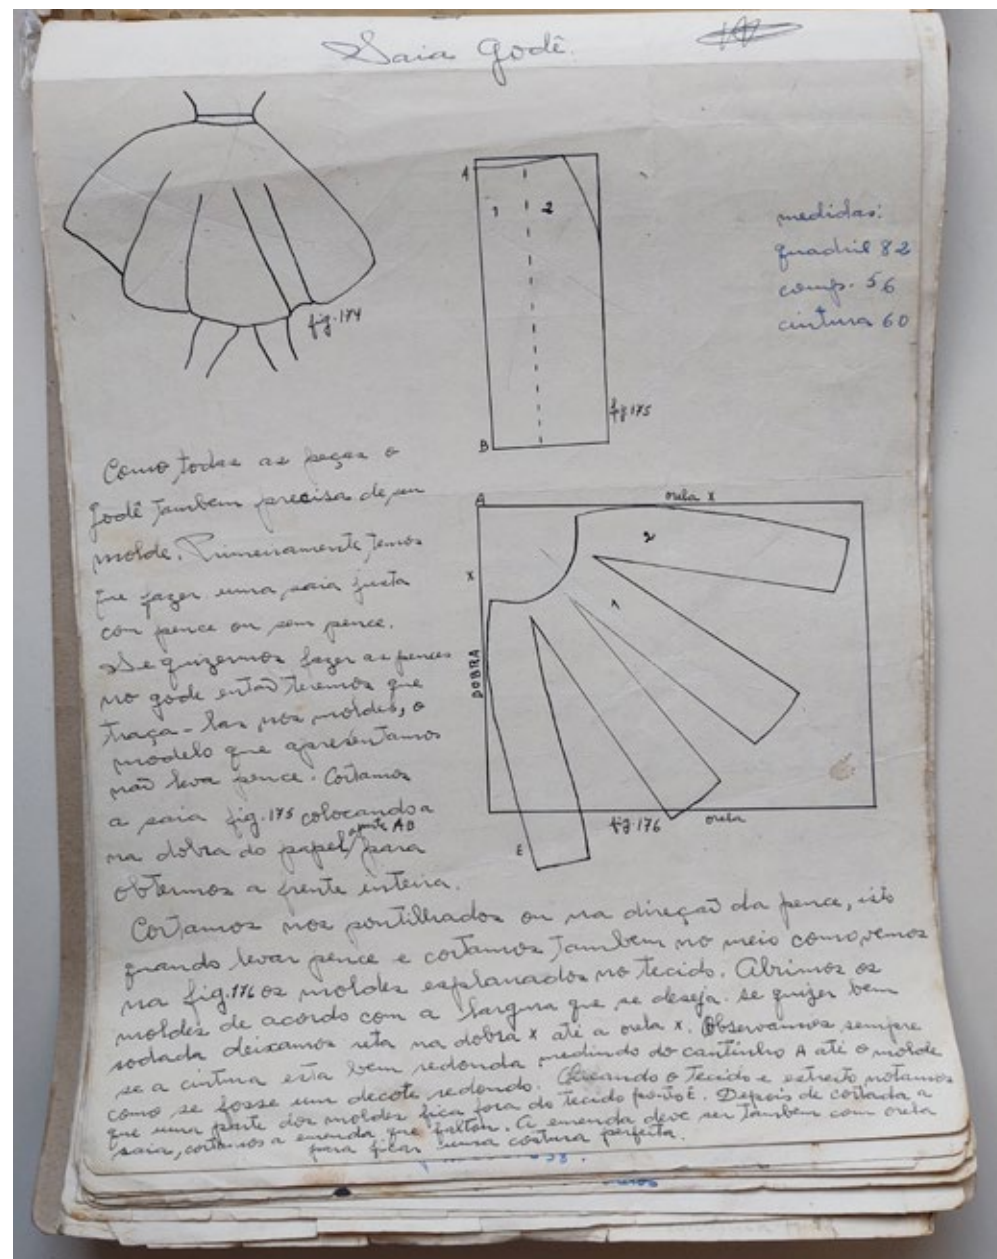 Saia Godê.
fig. 174
A
1
2
B
fig 175
medidas:
quadril 82
comp. 56
cintura 60
Como todas as peças o
godê tambem precisa de um
molde. Primeiramente temos
que fazer uma saia justa
com pence ou sem pence.
Se quizermos fazer as pences
no gode então teremos que
traça-las nos moldes, o
modelo que apresentamos
não leva pence. Cortamos
a saia fig. 175 colocando a
na dobra do papel, a parte AB para
obtermos a frente inteira.
A
orela X
2
X
1
DOBRA
E
fig 176
orela
Cortamos nos pontilhados ou na direção da pence, isto
quando levar pence e cortamos tambem no meio como vemos
na fig. 176 os moldes esplanados no tecido. Abrimos os
moldes de acordo com a largura que se deseja. se quizer bem
rodada deixamos reta na dobra x até a orela x. Observamos sempre
se a cintura esta bem redonda medindo do cantinho A até o molde
como se fosse um decote redondo. Quando o tecido e estreito notamos
que uma parte dos moldes fica fora do tecido ponto E. Depois de cortada a
saia, cortamos a emenda que faltou. A emenda deve ser tambem com orela
para ficar uma costura perfeita.